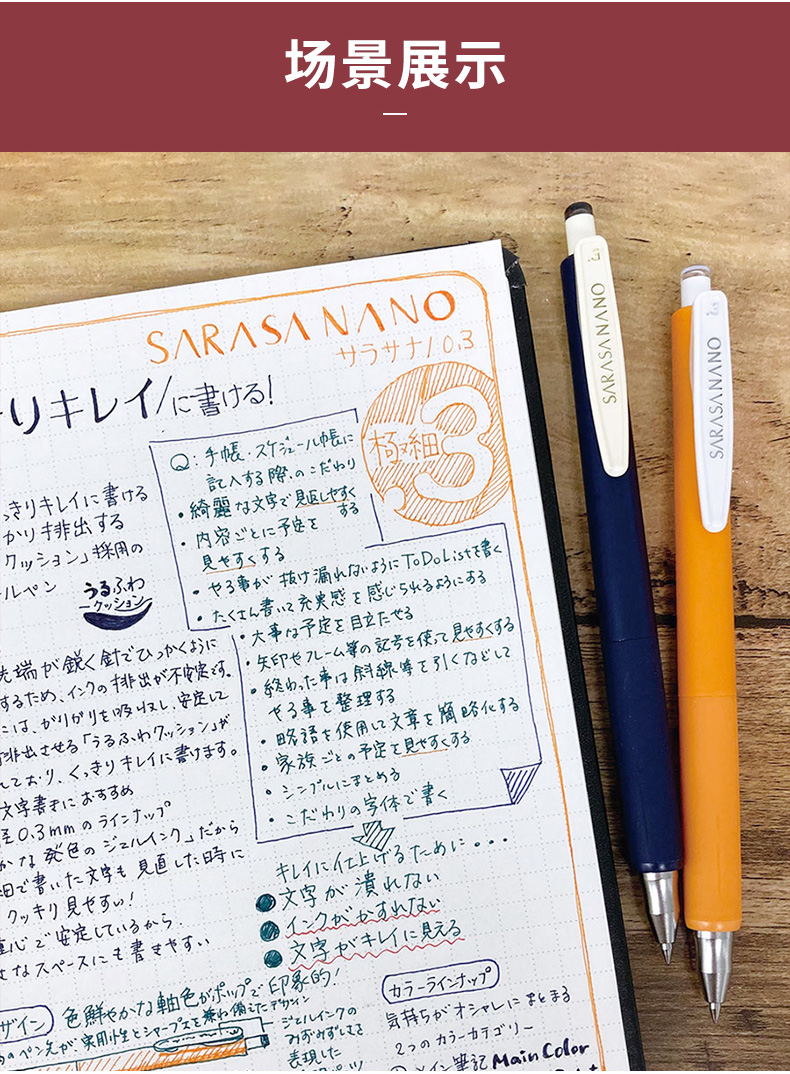 场景展示
SARASA NANO
サラサナノ 0.3
りキレイに書ける!
極細
3
Q: 手帳・スケジュール帳に
記入する際のこだわり
・綺麗な文字で見返しやすく
する
・内容ごとに予定を
見やすくする
・やる事が抜け漏れないようにToDoListを書く
・たくさん書いて充実感を感じられるようにする
・大事な予定を目立たせる
・矢印やフレーム等の記号を使って見やすくする
・終わった事は斜線等を引くなどして
やる事を整理する
・略語を使用して文章を簡略化する
・家族ごとの予定を見やすくする
・シンプルにまとめる
・こだわりの字体で書く
っきりキレイに書ける
かり排出する
クッション」採用の
ルペン
うるふわ
クッション
先端が鋭く針でひっかくように
するため、インクの排出が不安定です。
には、がりがりを吸収し、安定して
排出させる「うるふわクッション」が
しており、くっきりキレイに書けます。
文字書きにおすすめ
径0.3mmのラインナップ
かな発色のジェルインク」だから
細で書いた文字も見直した時に
クッキリ見やすい!
重心で安定しているから、
さなスペースにも書きやすい
キレイに仕上げるために・・・
文字が潰れない
インクがかすれない
文字がキレイに見える
ザイン
色鮮やかな軸色がポップで印象的!
のペン先が実用性とシャープスを兼ね備えたデザイン
ジェルインクの
みずみずしさを
表現した
カラーラインナップ
気持ちがオシャレにまとまる
2つのカラーカテゴリー
メイン筆記 Main Color
SARASA NANO
0.3
SARASA NANO
0.3